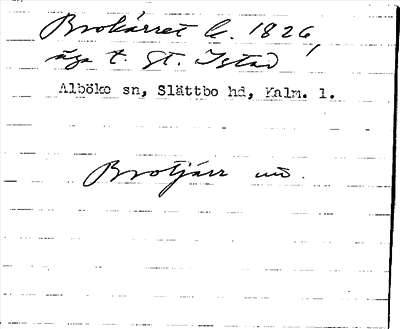 Brokärret L. 1826,
äga t. St. Istad
Alböke sn, Slättbo hd, Kalm. l.
Brotjärr